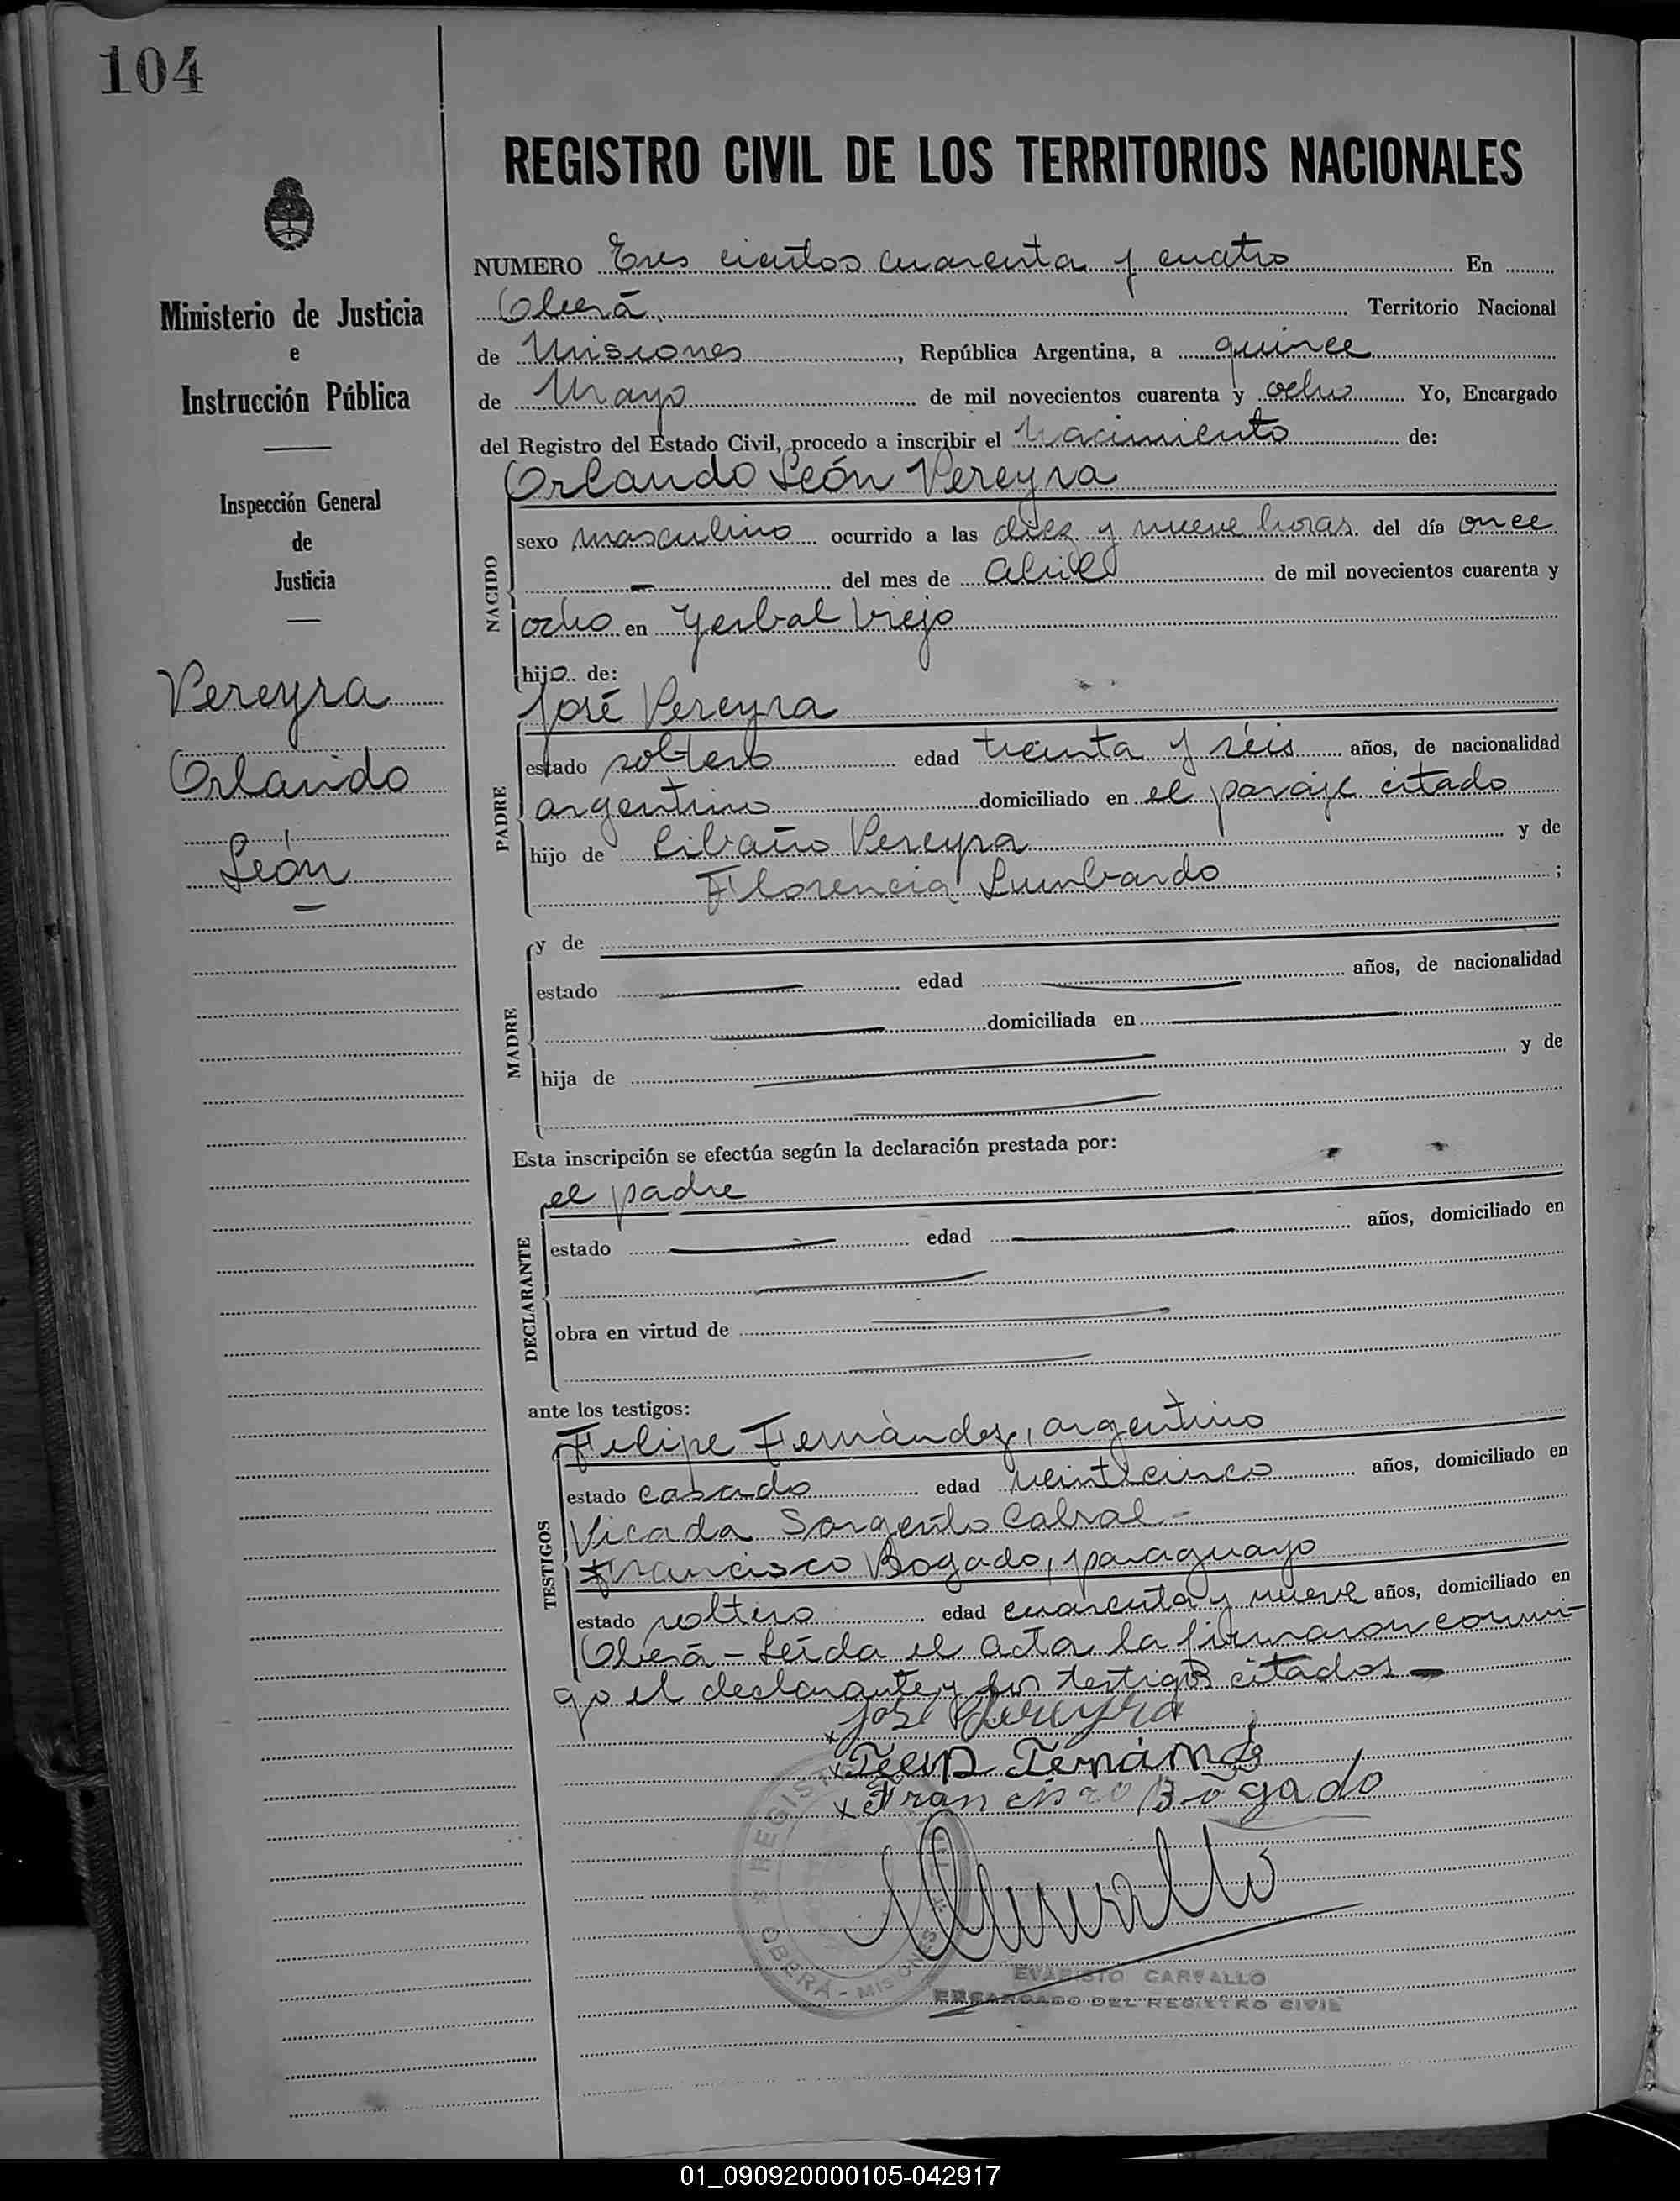 104
REGISTRO CIVIL DE LOS TERRITORIOS NACIONALES
Ministerio de Justicia
e
Instrucción Pública
Inspección General
de
Justicia
Pereyra
Orlando
León
NUMERO Tres cientos cuarenta y cuatro En
Oberá Territorio Nacional
de Misiones, República Argentina, a quince
de Mayo de mil novecientos cuarenta y ocho Yo, Encargado
del Registro del Estado Civil, procedo a inscribir el Nacimiento de:
Orlando León Pereyra
NACIDO
sexo masculino ocurrido a las diez y nueve horas del día once
- del mes de abril de mil novecientos cuarenta y
ocho en Yerbal Viejo
hijo de:
José Pereyra
PADRE
estado soltero edad treinta y séis años, de nacionalidad
argentino domiciliado en el paraje citado
hijo de Pereyra y de
Florencia Lumbardo ;
MADRE
y de
estado edad años, de nacionalidad
domiciliada en
hija de y de
Esta inscripción se efectúa según la declaración prestada por:
el padre
DECLARANTE
estado edad años, domiciliado en
obra en virtud de
ante los testigos:
Felipe Fernàndez, argentino
TESTIGOS
estado casado edad veinticinco años, domiciliado en
Picada Sargento Cabral -
Francisco Bogado, paraguayo
estado soltero edad cuarenta y nueve años, domiciliado en
Oberá - Leída el acta la firmaron conmi-
go el declarante y los testigos citados -
José Pereyra
x Fernánd
x Francisco Bogado
REGISTRO CIVIL
OBERÁ - MISIONES
EVARISTO CARVALLO
ENCARGADO DEL REGISTRO CIVIL
01_090920000105-042917